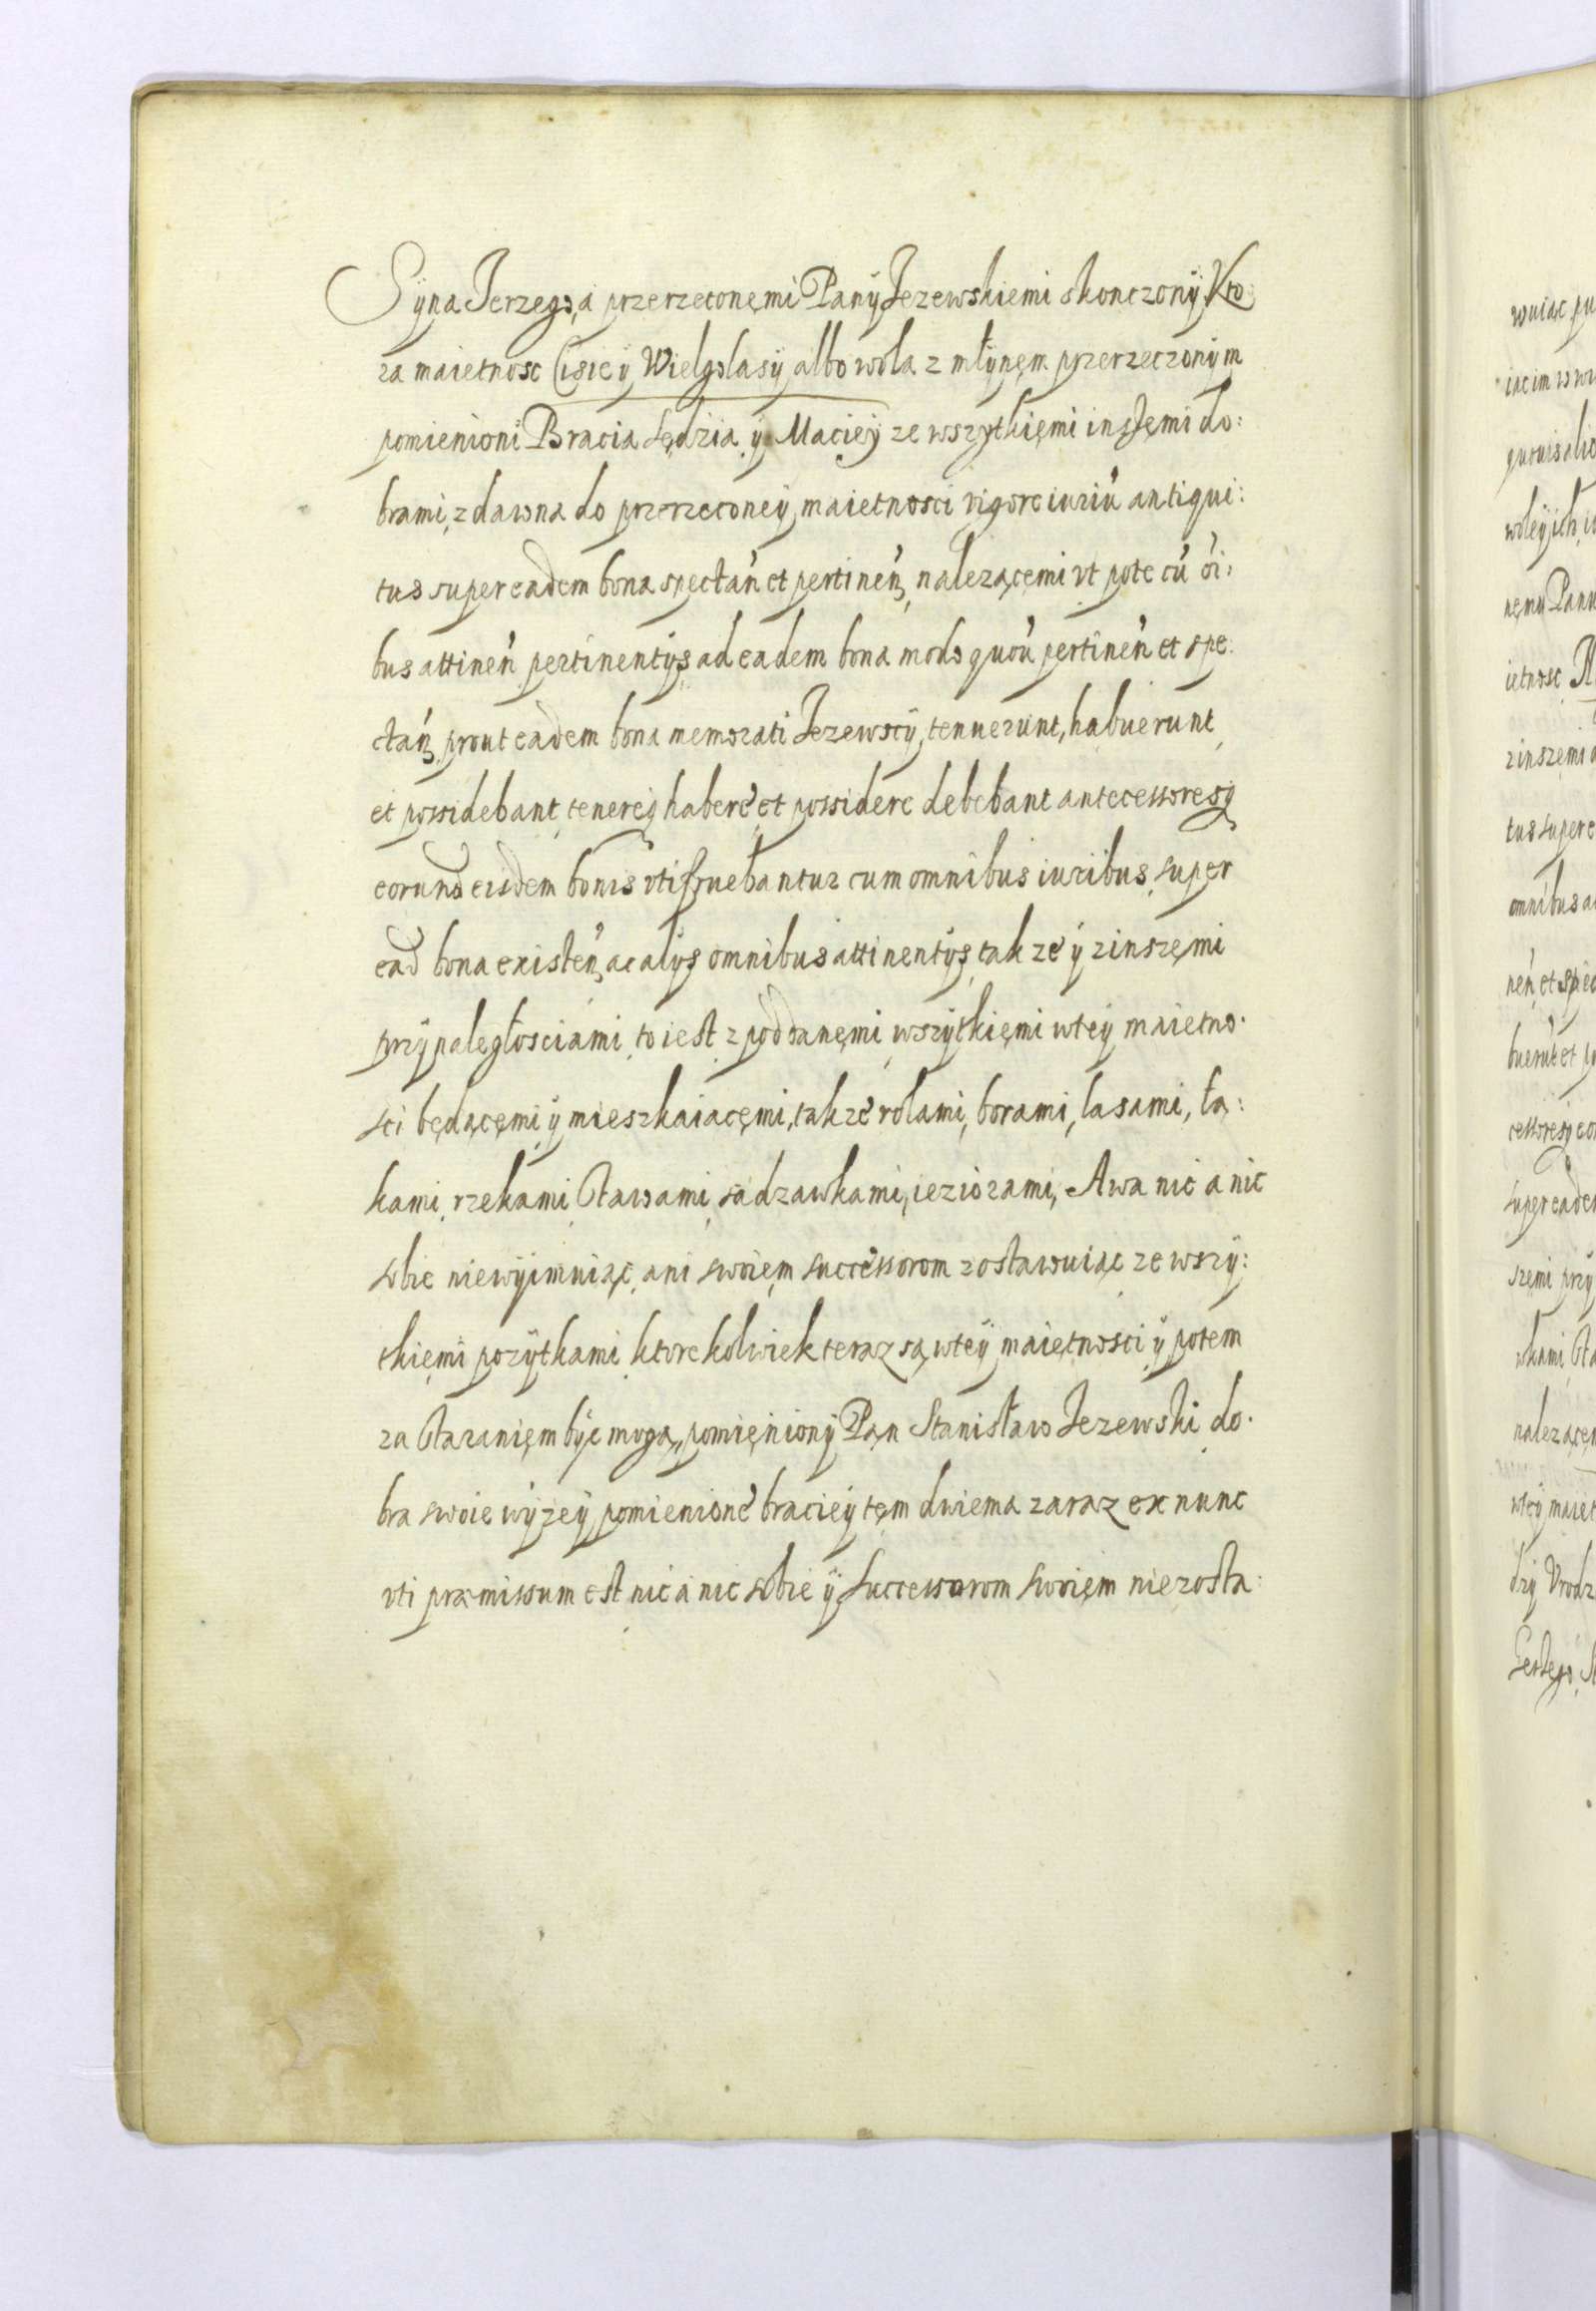 Syna Jerzego, á przerzeconęmi Pany Jezewskiemi skonczony. Kto:
ra maietnosc Cisie y Wielgolasy albo wola z młynęm przerzeczonym
pomienioni Bracia Sędzia y Maciey ze wszytkięmi inszęmi do:
brami, z dawna do przerzeconey maietnosci vigore iuriu antiqui:
tus super eadem bona spectań et pertineń, nalezącęmi vt pote cu oi:
bus attineń pertinentys ad eadem bona modo quou pertineń et spe:
ctań, prout eadem bona memorati Jezewscy, tenuerunt, habuerunt
et possidebant, tenereq habere et possidere debebant antecessoresq
eorund eisdem bonis vtifruebantur cum omnibus iuribus, super
ead bona existeń, ac alys omnibus attinentys, tak ze y z inszęmi
przypaległosciami, to iest z poddanęmi wszytkięmi wtey maietno:
sci będącęmi y mieszkaiacęmi, takze rolami, borami, lasami, łą:
kami, rzekami, stawami, sadzawkami, ieziorami, Awa nic a nic
sobie niewyimuiąc, ani swoięm successorom zostawuiąc ze wszy:
tkięmi pozytkami, ktorekolwiek teraz są wtey maiętnosci y potem
za staranięm byc mogą, pomięniony Pan Stanisław Jezewski do:
bra swoie wyzey pomienione braciey tęm dwiema zaraz ex nunc
vti præmissum est nic á nic sobie y Successorom swoięm niezosta:
wuiąc
iącim
quouis alio
woley ich
nęmu Panu
ietnosc
z inszęmi
tus super e
omnibus a
neń et spec
buerut et
cessoresq eo
super eadem
szęmi przy
wkami, sta
nalezącęm
wtey maiet